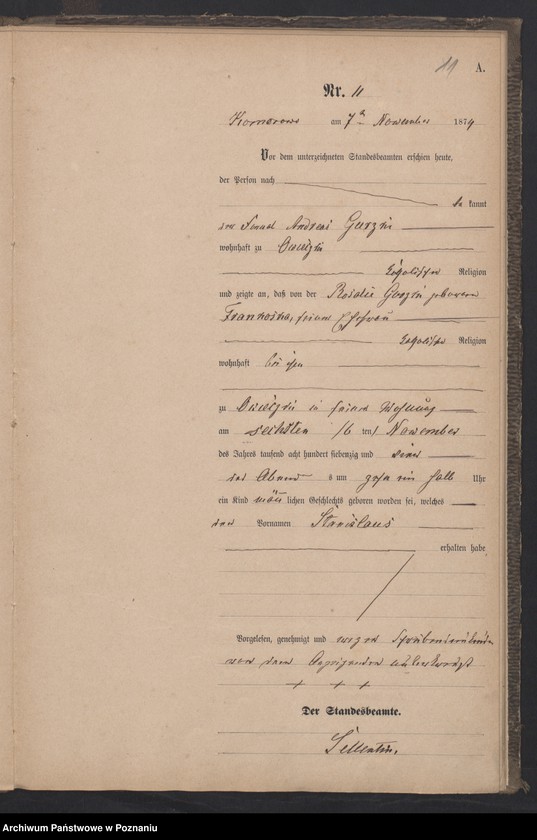 11 A.
Nr. 11
Komorowo am 7ten November 1874
Vor dem unterzeichneten Standesbeamten erschien heute,
der Person nach
be kannt
der Andreas Gurzin
wohnhaft zu
katholischer Religion
und zeigte an, daß von der Rosalie Gurzin geborenen
Ehefrau
katholischer Religion
wohnhaft bei ihm
zu in seiner Wohnung
am sechsten /6 ten/ November
des Jahres tausend acht hundert siebenzig und vier
des Abends um zehn ein halb Uhr
ein Kind männ lichen Geschlechts geboren worden sei, welches
den Vornamen Stanislaus
erhalten habe
Vorgelesen, genehmigt und wegen
von dem
+ + +
Der Standesbeamte.
Archiwum Państwowe w Poznaniu